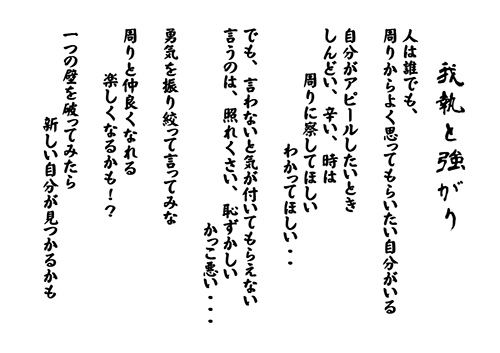 我執と強がり
人は誰でも、
周りからよく思ってもらいたい自分がいる
自分がアピールしたいとき
しんどい、辛い、時は
周りに察してほしい
わかってほしい・・
でも、言わないと気が付いてもらえない
言うのは、照れくさい、恥ずかしい
かっこ悪い・・・
勇気を振り絞って言ってみな
周りと仲良くなれる
楽しくなるかも！？
一つの壁を破ってみたら
新しい自分が見つかるかも